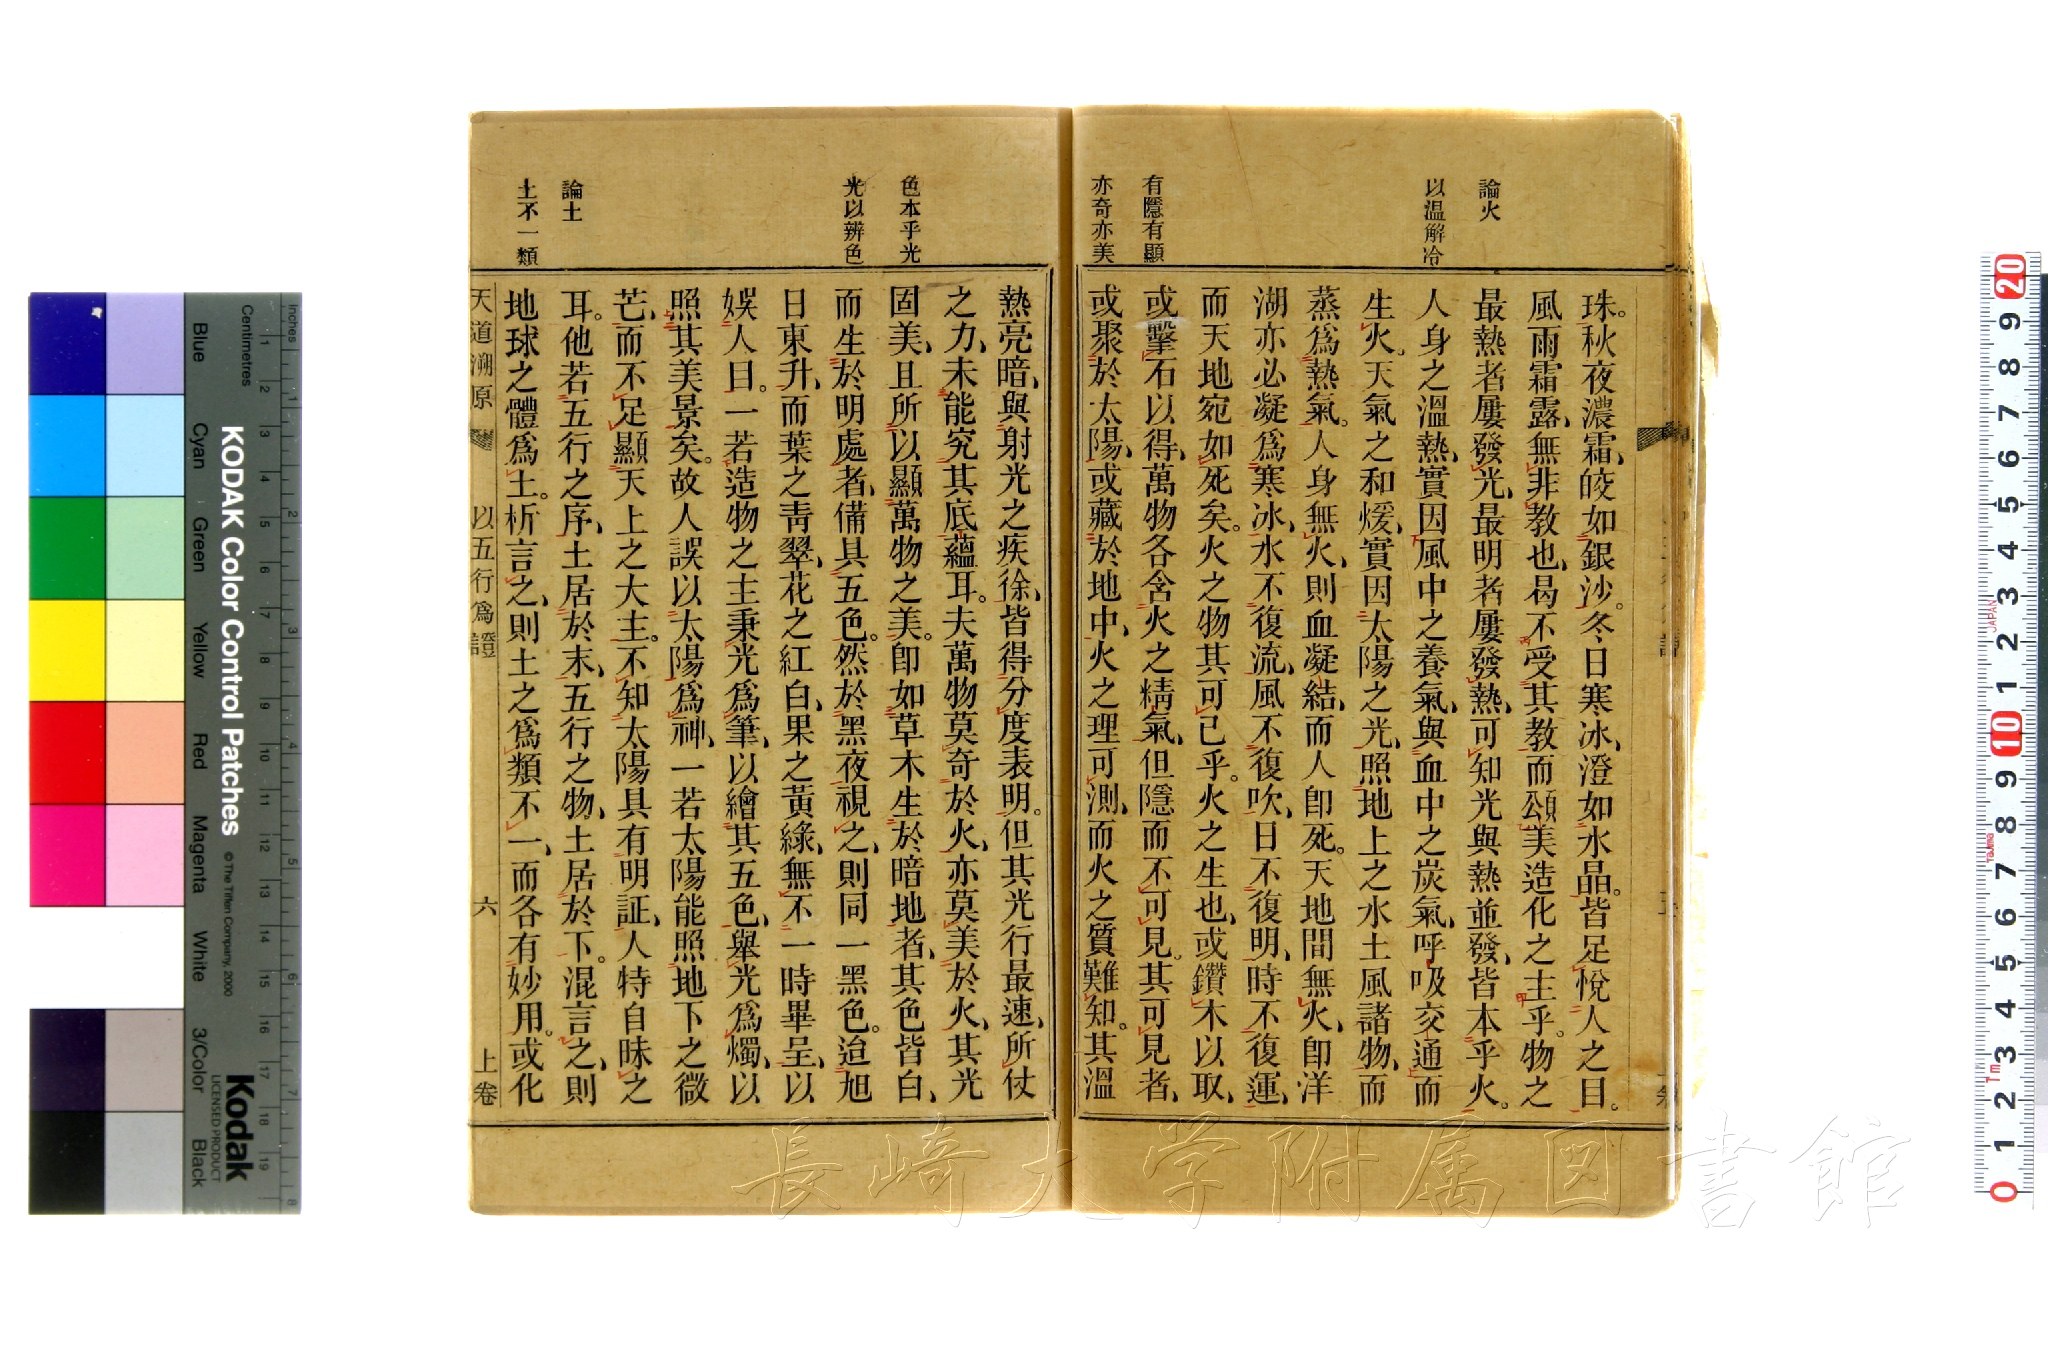 論火
以温解冷
有隱有顯
亦奇亦美
珠。秋夜濃霜、皎如銀沙。冬日寒冰、澄如水晶。皆足悅人之目。
風雨霜露、無非敎也、曷不受其敎而頌美造化之主乎。物之
最熱者屢發光、最明者屢發熱、可知光與熱並發、皆本乎火。
人身之溫熱、實因風中之養氣、與血中之炭氣、呼吸交通而
生火。天氣之和煖、實因太陽之光、照地上之水土風諸物、而
蒸爲熱氣。人身無火、則血凝結、而人卽死。天地間無火、卽洋
湖亦必凝爲寒冰、水不復流、風不復吹、日不復明、時不復運、
而天地宛如死矣。火之物其可已乎。火之生也、或鑽木以取、
或擊石以得、萬物各含火之精氣、但隱而不可見。其可見者、
或聚於太陽、或藏於地中、火之理可測、而火之質難知。其溫
色本乎光
光以辨色
論土
土不一類
熱亮暗、與射光之疾徐、皆得分度表明。但其光行最速、所仗
之力、未能究其底蘊耳。夫萬物莫奇於火、亦莫美於火、其光
固美、且所以顯萬物之美。卽如草木生於暗地者、其色皆白、
而生於明處者、備具五色。然於黑夜視之、則同一黑色。迨旭
日東升、而葉之靑翠、花之紅白、果之黃綠、無不一時畢呈、以
娛人目。一若造物之主秉光爲筆、以繪其五色、舉光爲燭、以
照其美景矣。故人誤以太陽爲神、一若太陽能照地下之微
芒、而不足顯天上之大主。不知太陽具有明証、人特自昧之
耳。他若五行之序、土居於末、五行之物、土居於下。混言之、則
地球之體爲土。析言之、則土之爲類不一、而各有妙用。或化
天道溯原 以五行爲證 六 上卷
KODAK Color Control Patches
© The Tiffen Company, 2000
Kodak
LICENSED PRODUCT
Inches
Centimetres
Blue
Cyan
Green
Yellow
Red
Magenta
White
3/Color
Black
長崎大学附属図書館
JAPAN